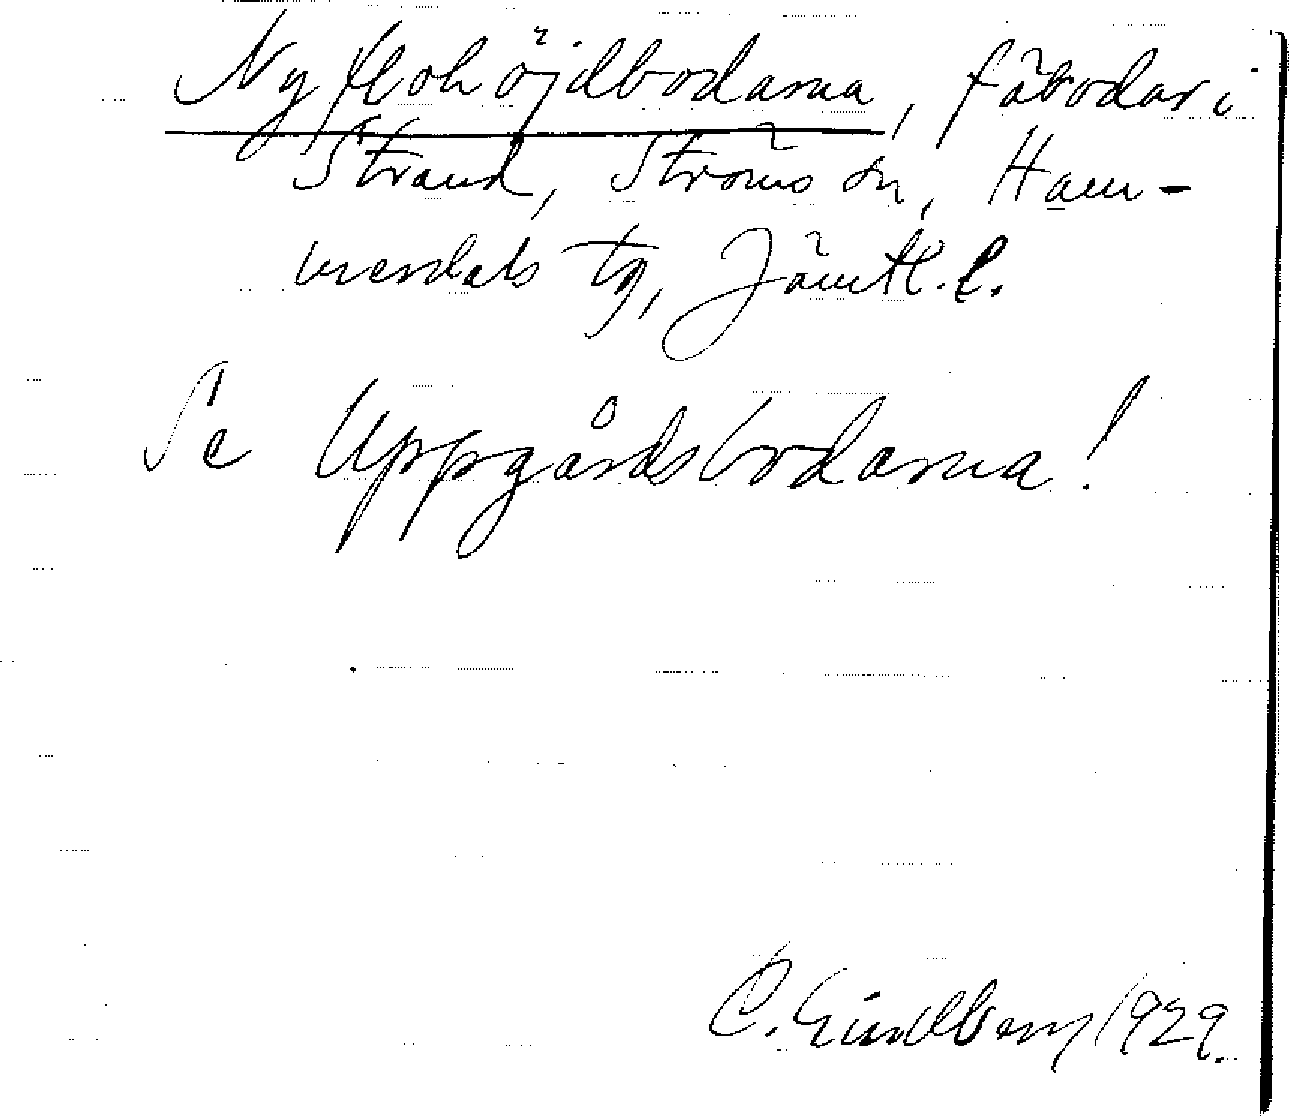 Nyflohöjdbodarna, fäbodar i
Strand, Ströms sn, Ham-
merdals tg, Jämtl. l.
Se Uppgårdsbodarna!
C. Lindberg 1929.